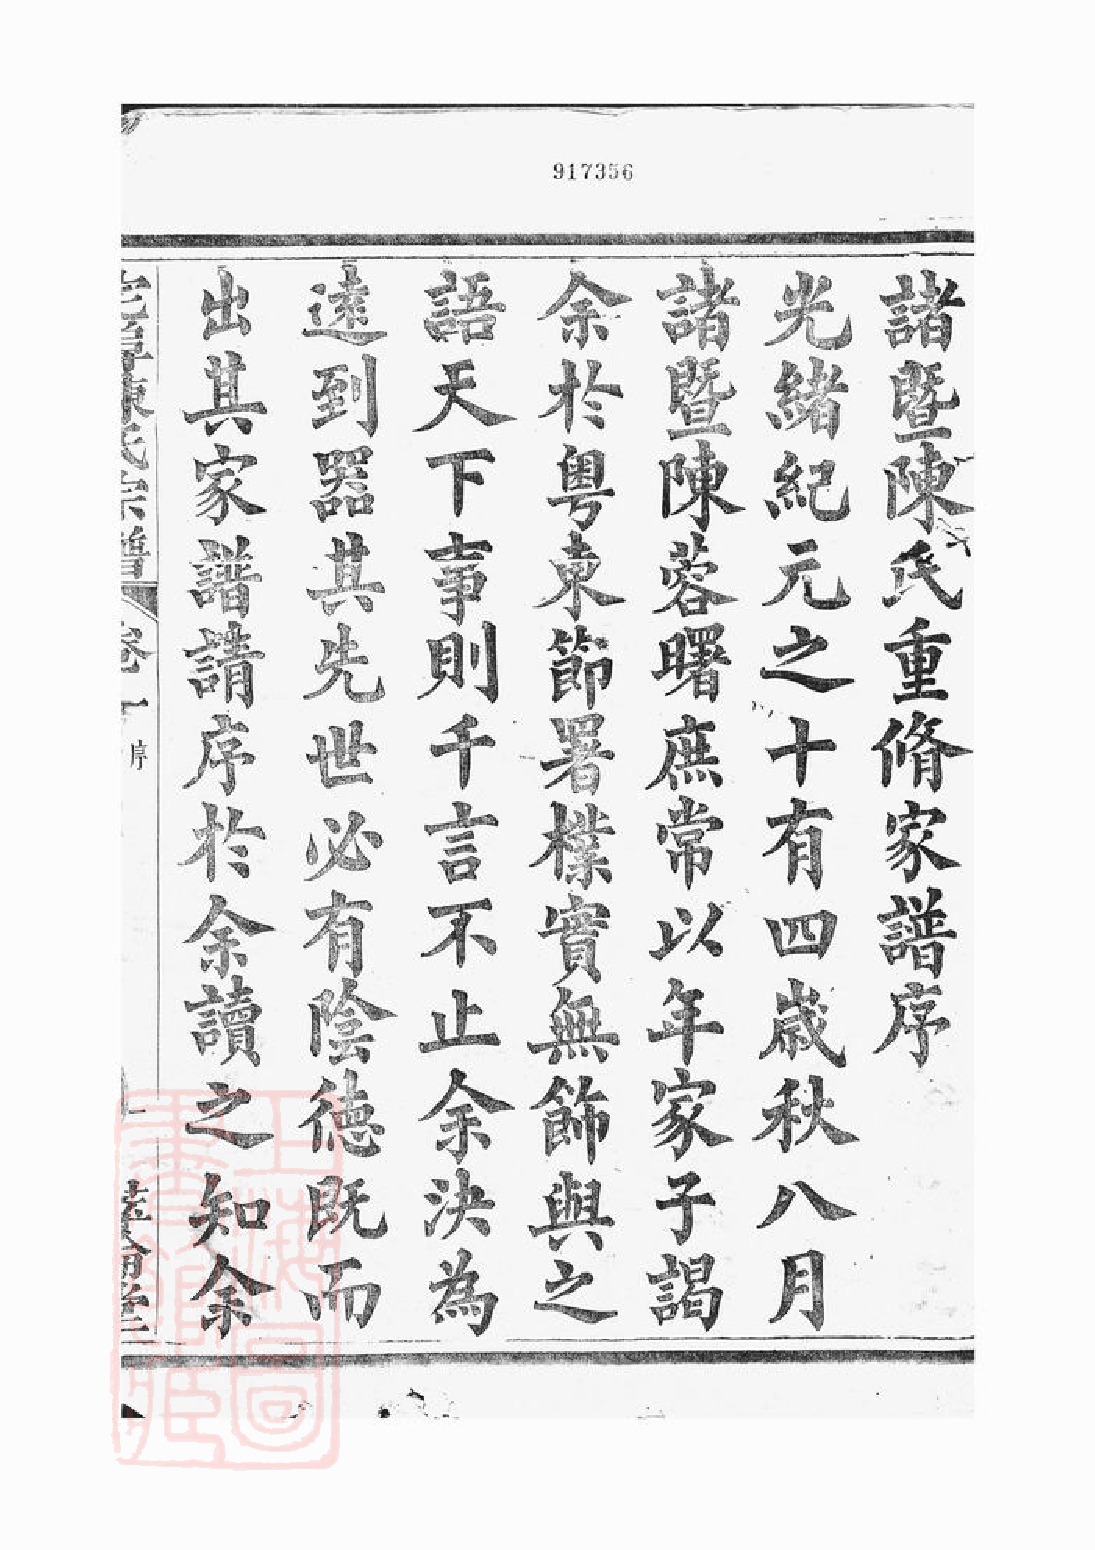 917356
諸暨陳氏重脩家譜序
光緒紀元之十有四歲秋八月
諸暨陳蓉曙庶常以年家子謁
余於粵東節署樸實無飾與之
語天下事則千言不止余決為
遠到器其先世必有陰德既而
出其家譜請序於余讀之知余
宅埠陳氏宗譜
卷一
序
一
上海圖書館藏